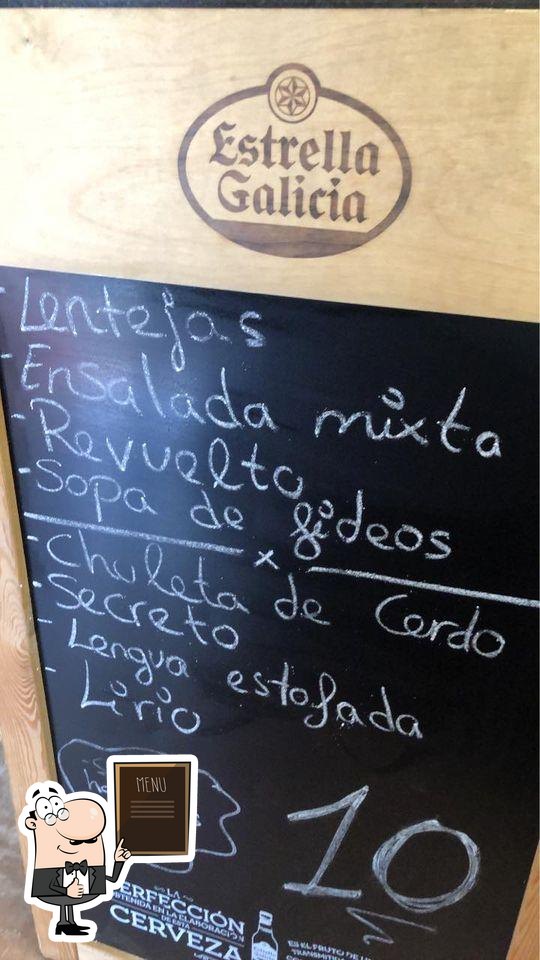 Estrella
Galicia
- Lentejas
- Ensalada mixta
- Revuelto
- Sopa de fideos
x
- Chuleta de Cerdo
- Secreto
- Lengua estofada
- Lirio
MENU
10
LA
PERFECCIÓN
OBTENIDA EN LA ELABORACIÓN
DE ESTA
CERVEZA
ES EL FRUTO DE